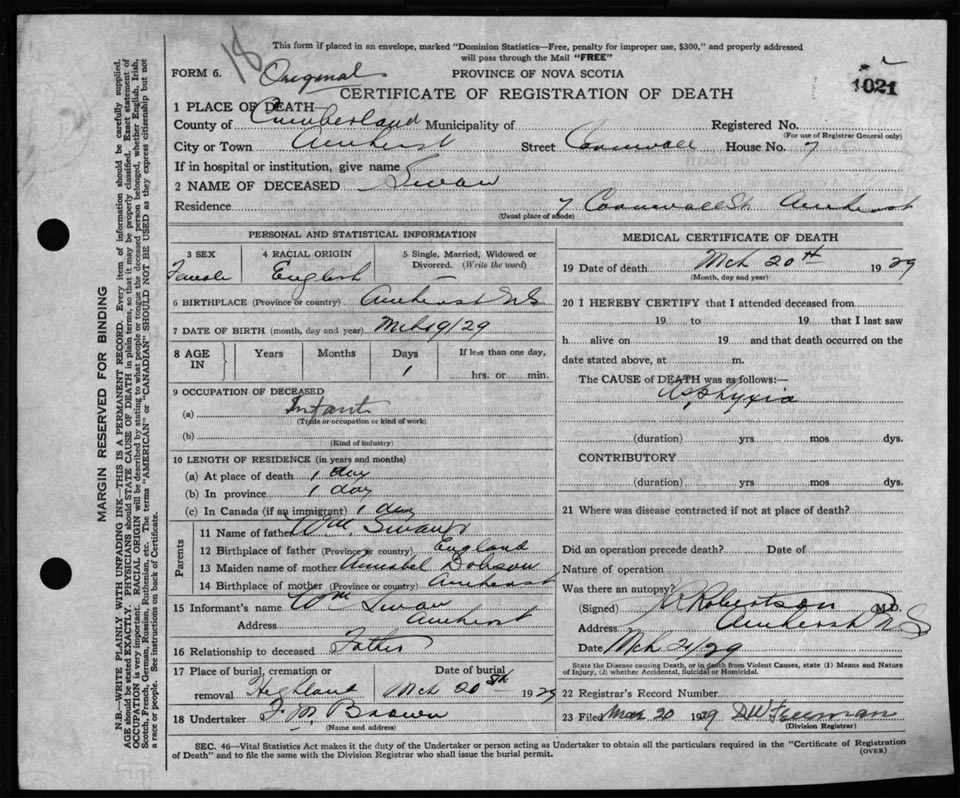 This form if placed in an envelope, marked "Dominion Statistics—Free, penalty for improper use, $300," and properly addressed
will pass through the Mail "FREE"
18
FORM 6. Original PROVINCE OF NOVA SCOTIA
1021
CERTIFICATE OF REGISTRATION OF DEATH
1 PLACE OF DEATH—
County of Cumberland Municipality of Registered No.
(For use of Registrar General only)
City or Town Amherst Street Cornwall House No. 7
If in hospital or institution, give name
2 NAME OF DECEASED Swan
Residence 7 Cornwall St Amherst
(Usual place of abode)
PERSONAL AND STATISTICAL INFORMATION
3 SEX Female
4 RACIAL ORIGIN English
5 Single, Married, Widowed or Divorced. (Write the word) —
6 BIRTHPLACE (Province or country) Amherst NS
7 DATE OF BIRTH (month, day and year) Mch 19/29
8 AGE IN Years Months Days 1 If less than one day, hrs. or min.
9 OCCUPATION OF DECEASED
(a) Infant
(Trade or occupation or kind of work)
(b)
(Kind of industry)
10 LENGTH OF RESIDENCE (in years and months)
(a) At place of death 1 day
(b) In province 1 day
(c) In Canada (if an immigrant) 1 day
Parents
11 Name of father Wm Swan
12 Birthplace of father (Province or country) England
13 Maiden name of mother Annabel Dobson
14 Birthplace of mother (Province or country) Amherst
15 Informant's name Wm Swan
Address Amherst
16 Relationship to deceased Father
17 Place of burial, cremation or removal Highland
Date of burial Mch 20th 1929
18 Undertaker F. M. Brown
(Name and address)
MEDICAL CERTIFICATE OF DEATH
19 Date of death Mch 20th 1929
(Month, day and year)
20 I HEREBY CERTIFY that I attended deceased from
19 to 19 that I last saw
h alive on 19 and that death occurred on the
date stated above, at m.
The CAUSE of DEATH was as follows:—
Asphyxia
(duration) yrs mos dys.
CONTRIBUTORY
(duration) yrs mos dys.
21 Where was disease contracted if not at place of death?
Did an operation precede death? Date of
Nature of operation
Was there an autopsy?
(Signed) Robertson M.D.
Address Amherst NS
Date Mch 21/29
State the Disease causing Death, or in death from Violent Causes, state (1) Means and Nature
of Injury, (2) whether Accidental, Suicidal or Homicidal.
22 Registrar's Record Number
23 Filed Mar 20 1929 DW Freeman
(Division Registrar)
SEC. 46—Vital Statistics Act makes it the duty of the Undertaker or person acting as Undertaker to obtain all the particulars required in the "Certificate of Registration
of Death" and to file the same with the Division Registrar who shall issue the burial permit. (OVER)
MARGIN RESERVED FOR BINDING
N.B.—WRITE PLAINLY, WITH UNFADING INK—THIS IS A PERMANENT RECORD. Every item of information should be carefully supplied.
AGE should be stated EXACTLY. PHYSICIANS should STATE CAUSE OF DEATH in plain terms, so that it may be properly classified. Exact statement of
OCCUPATION is very important. RACIAL ORIGIN will be described by stating to what people or tongue the deceased person belonged, whether English, Irish,
Scotch, French, German, Russian, Ruthenian, etc. The terms "AMERICAN" or "CANADIAN" SHOULD NOT BE USED as they express citizenship but not
a race or people. See instructions on back of Certificate.